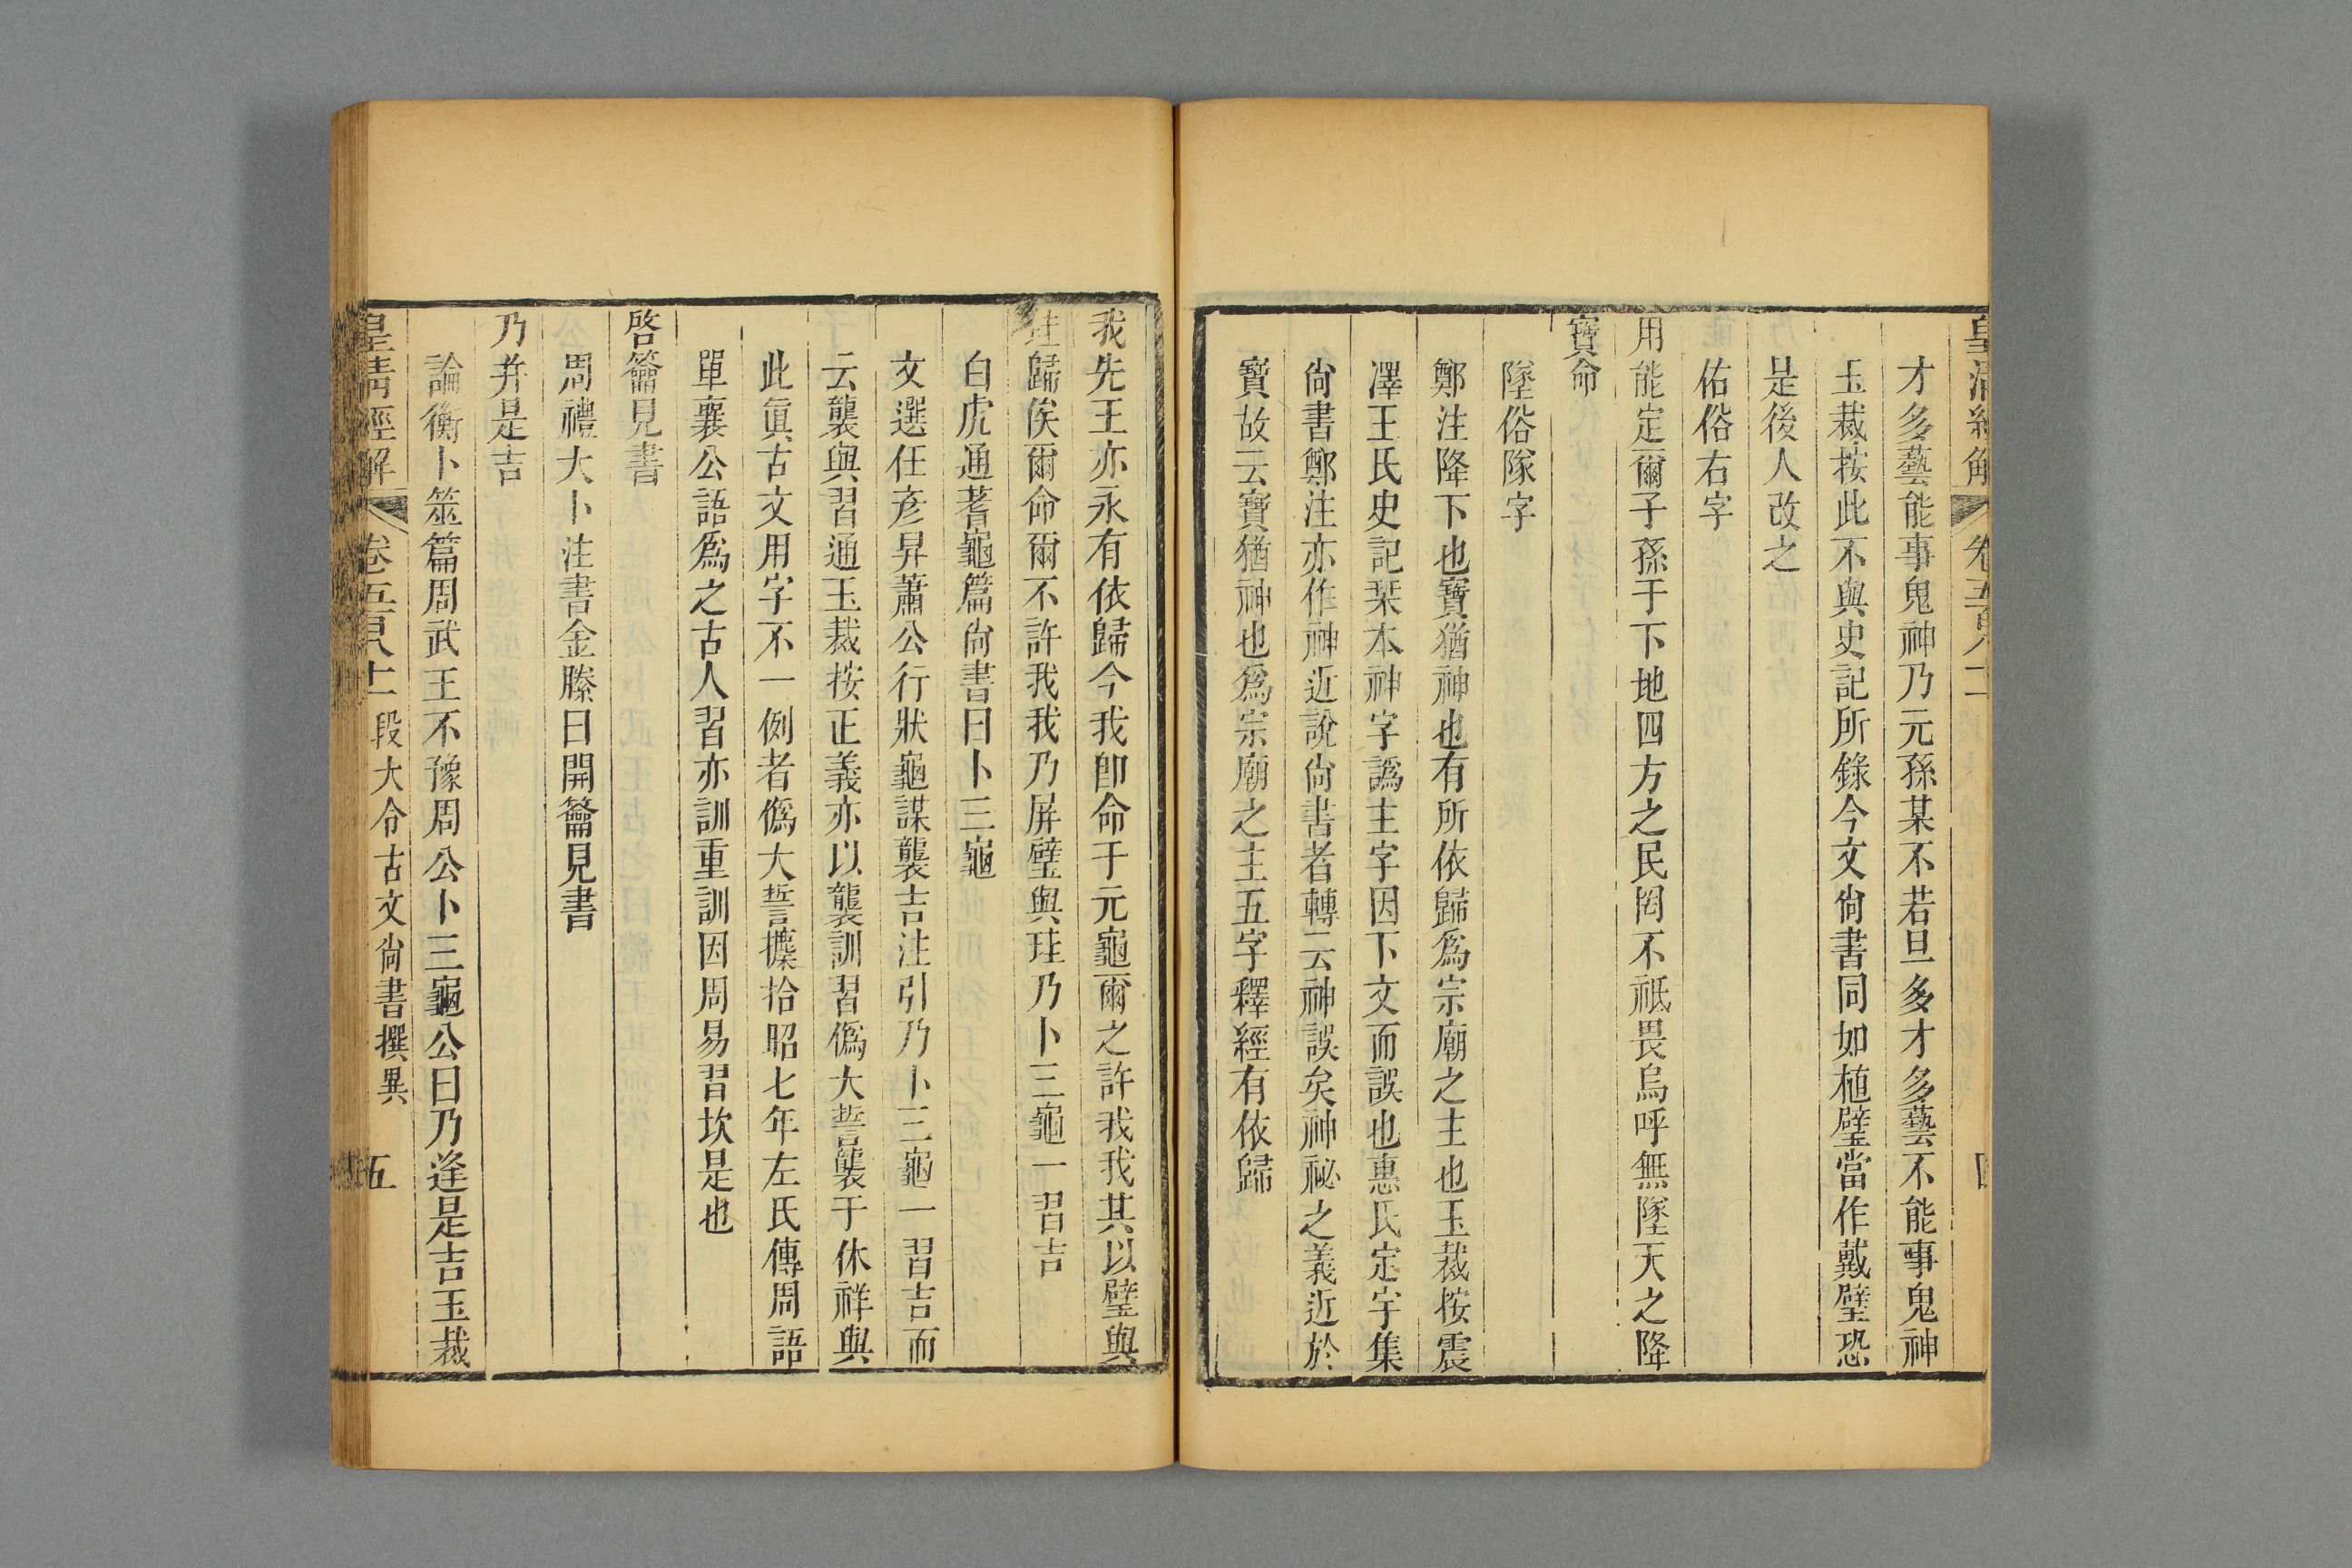 皇清經解 卷五百八十一
才多藝能事鬼神乃元孫某不若旦多才多藝不能事鬼神
玉裁按此不與史記所錄今文尙書同如植璧當作戴璧恐
是後人改之
佑俗右字
用能定爾子孫于下地四方之民罔不祗畏烏呼無墜天之降
寶命
墜俗隊字
鄭注降下也寶猶神也有所依歸爲宗廟之主也玉裁按震
澤王氏史記琹本神字譌主字因下文而誤也惠氏定宇集
尙書鄭注亦作神近說尙書者轉云神誤矣神祕之義近於
寶故云寶猶神也爲宗廟之主五字釋經有依歸
我先王亦永有依歸今我卽命于元龜爾之許我我其以璧與
珪歸俟爾命爾不許我我乃屏璧與珪乃卜三龜一習吉
白虎通蓍龜篇尙書曰卜三龜
文選任彥昇蕭公行狀龜謀襲吉注引乃卜三龜一習吉而
云襲與習通玉裁按正義亦以襲訓習僞大誓襲于休祥與
此眞古文用字不一例者僞大誓摭拾昭七年左氏傳周語
單襄公語爲之古人習亦訓重訓因周易習坎是也
啓籥見書
周禮大卜注書金縢曰開籥見書
乃并是吉
論衡卜筮篇周武王不豫周公卜三龜公曰乃逢是吉玉裁
皇清經解 卷五百八十一 段大令古文尙書撰異 五